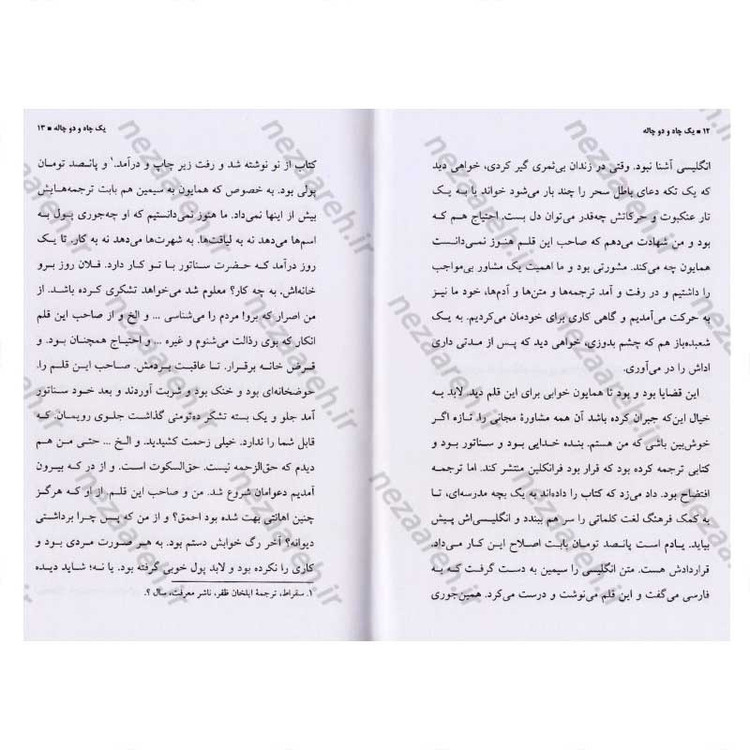 ۱۲ ■ یک چاه و دو چاله
انگلیسی آشنا نبود. وقتی در زندان بی‌ثمری گیر کردی، خواهی دید
که یک تکه دعای باطل سحر را چند بار می‌شود خواند یا به یک
تار عنکبوت و حرکاتش چه‌قدر می‌توان دل بست. احتیاج هم که
بود و من شهادت می‌دهم که صاحب این قلم هنوز نمی‌دانست
همایون چه می‌کند. مشورتی بود و ما اهمیت یک مشاور بی‌مواجب
را داشتیم و در رفت و آمد ترجمه‌ها و متن‌ها و آدم‌ها، خود ما نیز
به حرکت می‌آمدیم و گاهی کاری برای خودمان می‌کردیم. به یک
شعبده‌باز هم که چشم بدوزی، خواهی دید که پس از مدتی داری
اداش را در می‌آوری.
این قضایا بود و بود تا همایون خوابی برای این قلم دید. لابد به
خیال این‌که جبران کرده باشد آن همه مشاورهٔ مجانی را. تازه اگر
خوش‌بین باشی که من هستم. بنده خدایی بود و سناتور بود و
کتابی ترجمه کرده بود که قرار بود فرانکلین منتشر کند. اما ترجمه
افتضاح بود. داد می‌زد که کتاب را داده‌اند به یک بچه مدرسه‌ای، تا
به کمک فرهنگ لغت کلماتی را سر هم ببندد و انگلیسی‌اش پیش
بیاید. یادم است پانـصد تومان بابت اصلاح این کار می‌داد.
قراردادش هست. متن انگلیسی را سیمین به دست گرفت که به
فارسی می‌گفت و این قلم می‌نوشت و درست می‌کرد. همین‌جوری
یک چاه و دو چاله ■ ۱۳
کتاب از نو نوشته شد و رفت زیر چاپ و درآمد.۱ و پانـصد تومان
پولی بود. به خصوص که همایون به سیمین هم بابت ترجمه‌هایش
بیش از اینها نمی‌داد. ما هنوز نمی‌دانستیم که او چه‌جوری پول به
اسم‌ها می‌دهد نه به لیاقت‌ها. به شهرت‌ها می‌دهد نه به کار. تا یک
روز درآمد که حضرت سناتور با تو کار دارد. فلان روز برو
خانه‌اش. به چه کار؟ معلوم شد می‌خواهد تشکری کرده باشد. از
من اصرار که برو! مردم را می‌شناسی ... و الخ و از صاحب این قلم
انکار که بوی رذالت می‌شنوم و غیره ... و احتیاج همچنان بود. و
قرض خانه برقرار. تا عاقبت بردمش. صاحب این قلم را.
حوضخانه‌ای بود و خنک بود و شربت آوردند و بعد خود سناتور
آمد جلو و یک بسته تشکر ده‌تومنی گذاشت جلوی رویمان. که
قابل شما را ندارد. خیلی زحمت کشیدید. و الخ ... حتی من هم
دیدم که حق‌الزحمه نیست. حق‌السکوت است. و از در که بیرون
آمدیم دعوامان شروع شد. من و صاحب این قلم. از او که هرگز
چنین اهانتی بهت شده بود احمق؟ و از من که پس چرا برداشتی
دیوانه؟ آخر رگ خوابش دستم بود. به هر صورت مردی بود و
کاری را نکرده بود و لابد پول خوبی گرفته بود. یا نه؛ شاید دیده
۱. سقراط، ترجمهٔ ایلخان ظفر، ناشر معرفت، سال ؟.
nezaareh.ir